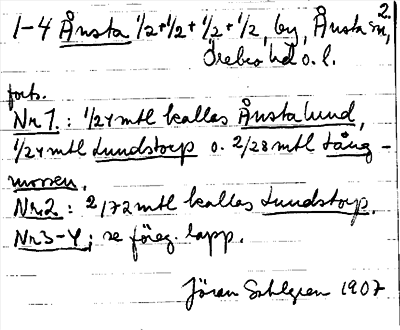 2.
1-4 Ånsta 1/2+1/2+1/2+1/2, by, Ånsta sn,
Örebro hd o. l.
forts.
Nr 1.: 1/24 mtl kallas Ånstalund,
1/24 mtl Lundstorp o. 2/28 mtl Lång-
mossen.
Nr 2: 2/72 mtl kallas Lundstorp.
Nr 3-4; se föreg. lapp.
Jöran Sahlgren 1907